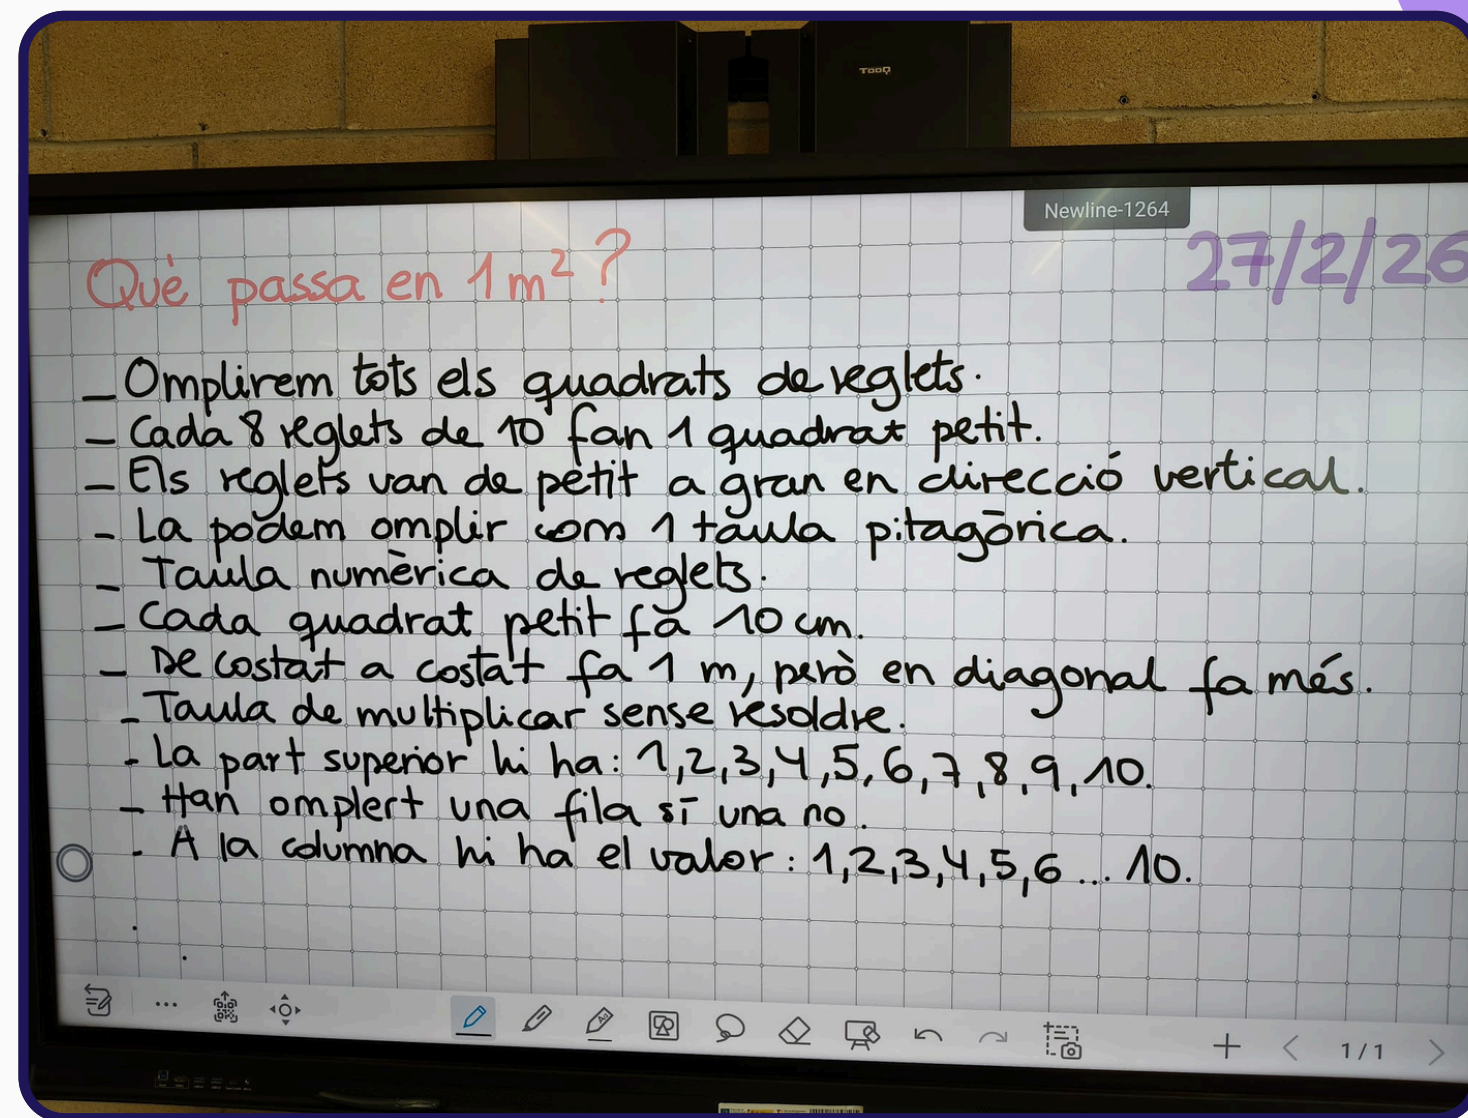 TOOQ
Newline-1264
27/2/26
Què passa en 1 m²?
- Omplirem tots els quadrats de reglets.
- Cada 8 reglets de 10 fan 1 quadrat petit.
- Els reglets van de petit a gran en direcció vertical.
- La podem omplir com 1 taula pitagòrica.
- Taula numèrica de reglets.
- Cada quadrat petit fa 10 cm.
- De costat a costat fa 1 m, però en diagonal fa més.
- Taula de multiplicar sense resoldre.
- La part superior hi ha: 1,2,3,4,5,6,7,8,9,10.
- Han omplert una fila sí una no.
- A la columna hi ha el valor: 1,2,3,4,5,6... 10.
1/1